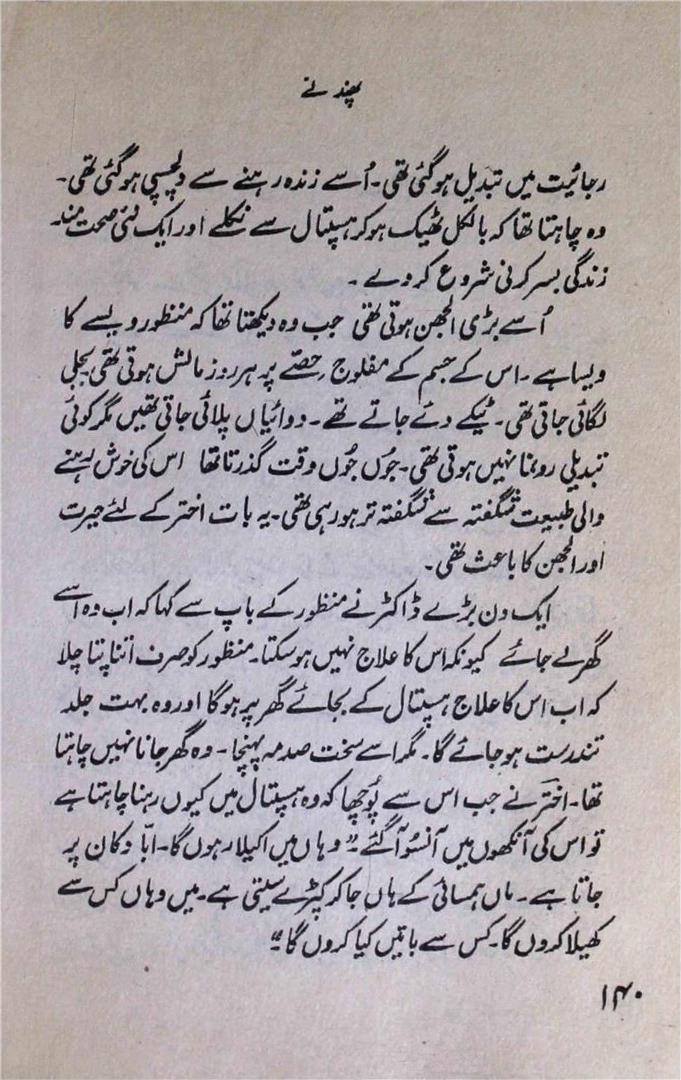 پھندنے
رجائیت میں تبدیل ہوگئی تھی۔ اُسے زندہ رہنے سے دلچسپی ہوگئی تھی۔
وہ چاہتا تھا کہ بالکل ٹھیک ہوکر ہسپتال سے نکلے اور ایک نئی صحت مند
زندگی بسر کرنی شروع کردے۔
اُسے بڑی الجھن ہوتی تھی جب وہ دیکھتا تھا کہ منظور ویسے کا
ویسا ہے۔ اس کے جسم کے مفلوج حصّے پر ہر روز مالش ہوتی تھی بجلی
لگائی جاتی تھی۔ ٹیکے دئے جاتے تھے۔ دوائیاں پلائی جاتی تھیں مگر کوئی
تبدیلی رونما نہیں ہوتی تھی۔ جُوں جُوں وقت گذرتا تھا اس کی خوش رہنے
والی طبیعت شگفتہ سے شگفتہ تر ہو رہی تھی۔ یہ بات اختر کے لئے حیرت
اور الجھن کا باعث تھی۔
ایک دن بڑے ڈاکٹر نے منظور کے باپ سے کہا کہ اب وہ اسے
گھر لے جائے کیونکہ اس کا علاج نہیں ہوسکتا۔ منظور کو صرف اتنا پتا چلا
کہ اب اس کا علاج ہسپتال کے بجائے گھر پر ہوگا اور وہ بہت جلد
تندرست ہوجائے گا۔ مگر اسے سخت صدمہ پہنچا۔ وہ گھر جانا نہیں چاہتا
تھا۔ اختر نے جب اس سے پُوچھا کہ وہ ہسپتال میں کیوں رہنا چاہتا ہے
تو اس کی آنکھوں میں آنسُو آگئے۔ "وہاں میں اکیلا رہوں گا۔ ابّا دکان پر
جاتا ہے۔ ماں ہمسائی کے ہاں جاکر کپڑے سیتی ہے۔ میں وہاں کس سے
کھیلا کروں گا۔ کس سے باتیں کیا کروں گا۔"
۱۴۰